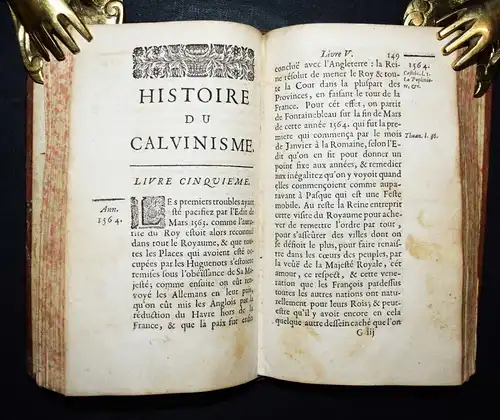 HISTOIRE
DU
CALVINISME.
LIVRE CINQUIEME.
Ann.
1564.
LEs premiers troubles ayant
esté pacifiez par l'Edit de
Mars 1563. comme l'auto-
rité du Roy estoit alors reconnuë
dans tout le Royaume, & que tou-
tes les Places qui avoient esté oc-
cupées par les Huguenots s'estoient
remises sous l'obéïssance de Sa Ma-
jesté; comme ensuite on eût ren-
voyé les Allemans en leur païs,
qu'on eût mis les Anglois par la
réduction du Havre hors de la
France, & que la paix fut enfin
Livre V. 149
concluë avec l'Angleterre: la Rei-
ne résolut de mener le Roy & tou-
te la Cour dans la pluspart des
Provinces, en faisant le tour de la
France. Pour cét effet, on partit
de Fontainebleau sur la fin de Mars
de cette année 1564. qui fut la pre-
miere qui commença par le mois
de Janvier à la Romaine, selon l'E-
dit qu'on en fit pour donner un
point fixe aux années, & remedier
aux inégalitez qu'on y voyoit quand
elles commençoient comme aupa-
ravant à Pasque qui est une Feste
mobile. Au reste la Reine entreprit
cette visite du Royaume pour ache-
ver de remettre l'ordre par tout;
pour s'asseûrer des villes dont on
se défioit le plus, pour faire renais-
tre dans les cœurs des peuples, par
la veûë de la Majesté Royale, cét
amour, ce respect, & cette vene-
ration que les François pardessus
toutes les autres nations ont natu-
rellement pour leurs Rois; & peut-
estre qu'il y avoit encore en cela
quelque autre dessein caché que l'on
G iij
1564.
Thuan. l. 36.